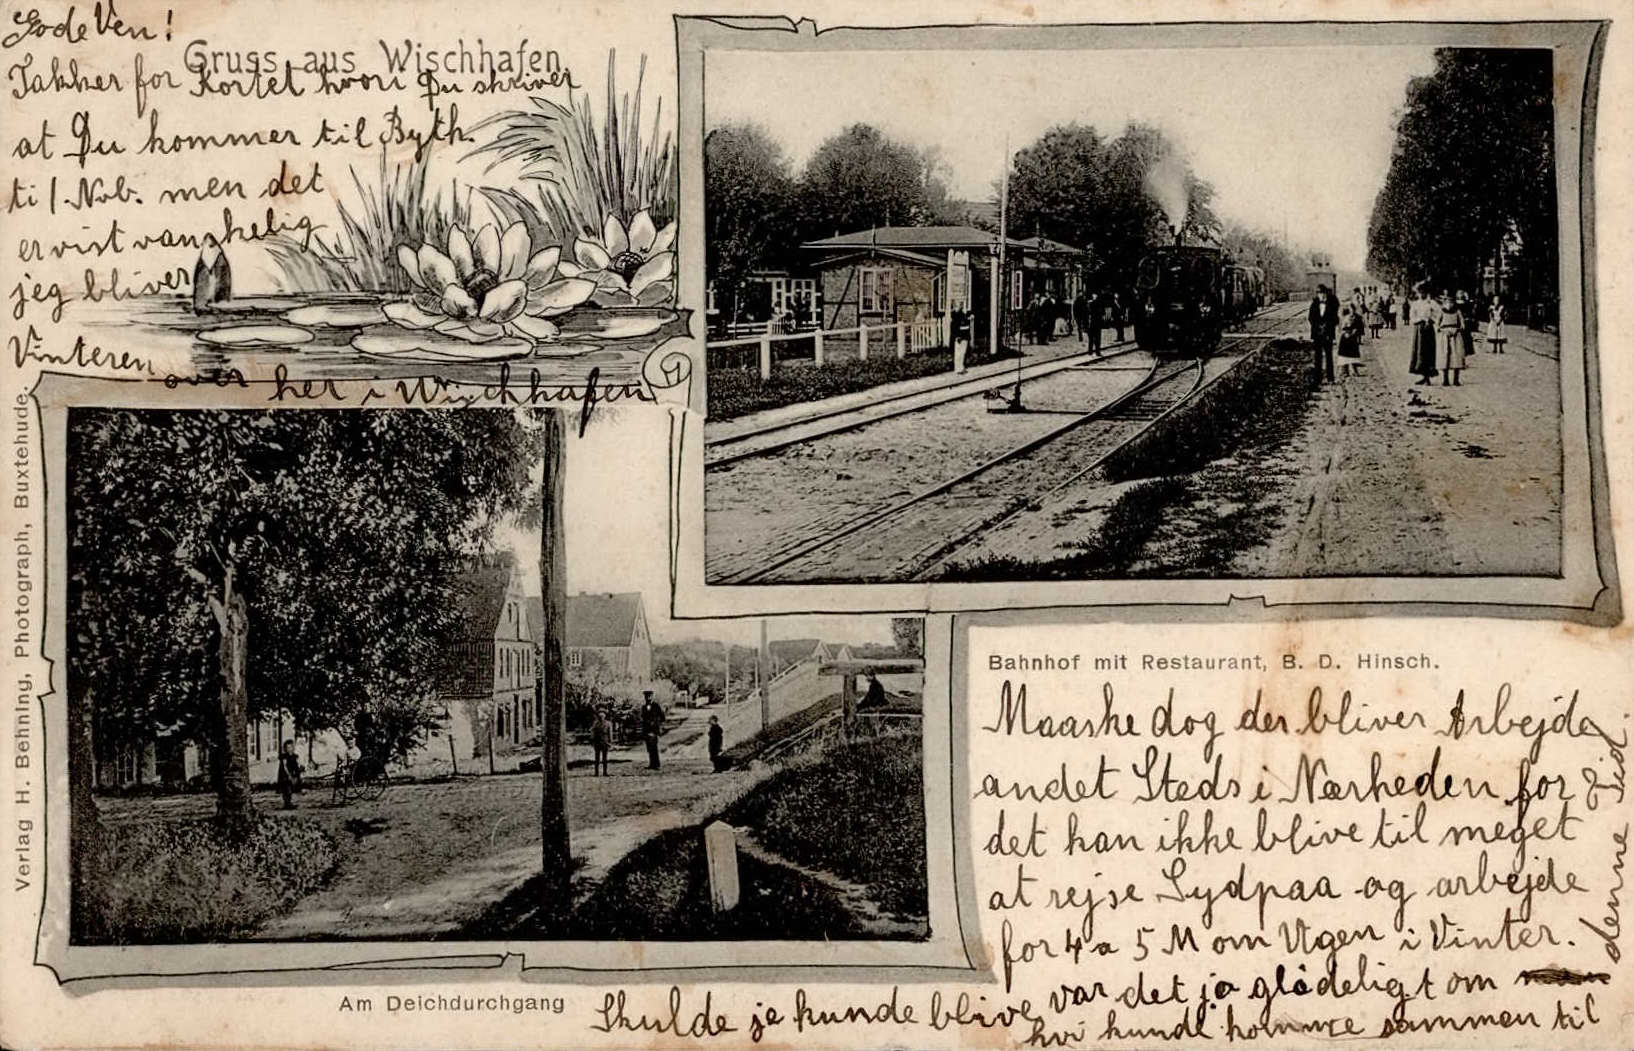 Gode Ven!
Gruss aus Wischhafen.
Takker for Kortet hvori Du skriver
at Du kommer til Byth.
ti 1. Nob. men det
er vist vanskelig
jeg bliver
Vinteren
over her i Wischhafen
Verlag H. Behning, Photograph, Buxtehude.
Bahnhof mit Restaurant, B. D. Hinsch.
Maaske dog der bliver Arbejde
andet Steds i Nærheden for
det kan ikke blive til meget
at rejse Sydpaa og arbejde
for 4 a 5 M om Ugen i Vinter.
Am Deichdurchgang
Skulde je kunde blive
var det jo glädeligt om
hvi kunde komme sammen til
denne Tid.